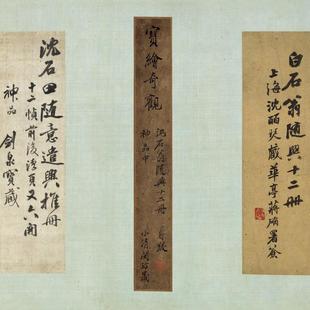 白石翁隨興十二冊
上海沈藏華亭蔣确署簽
寶繪奇觀
沈石翁隨興十二冊
神品中
沈石田隨意遣興推冊
十二幀前後浮頁又六開
神品 劍泉寶藏